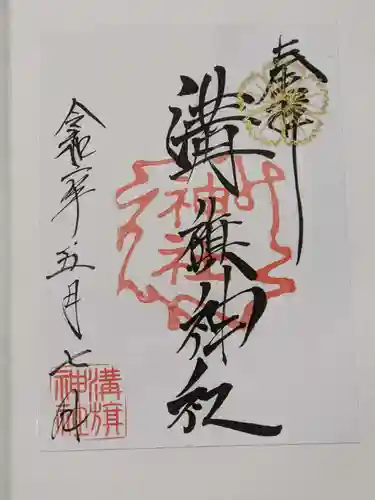 奉拝
溝旗神社
令和二年五月七日
神社
溝旗神社